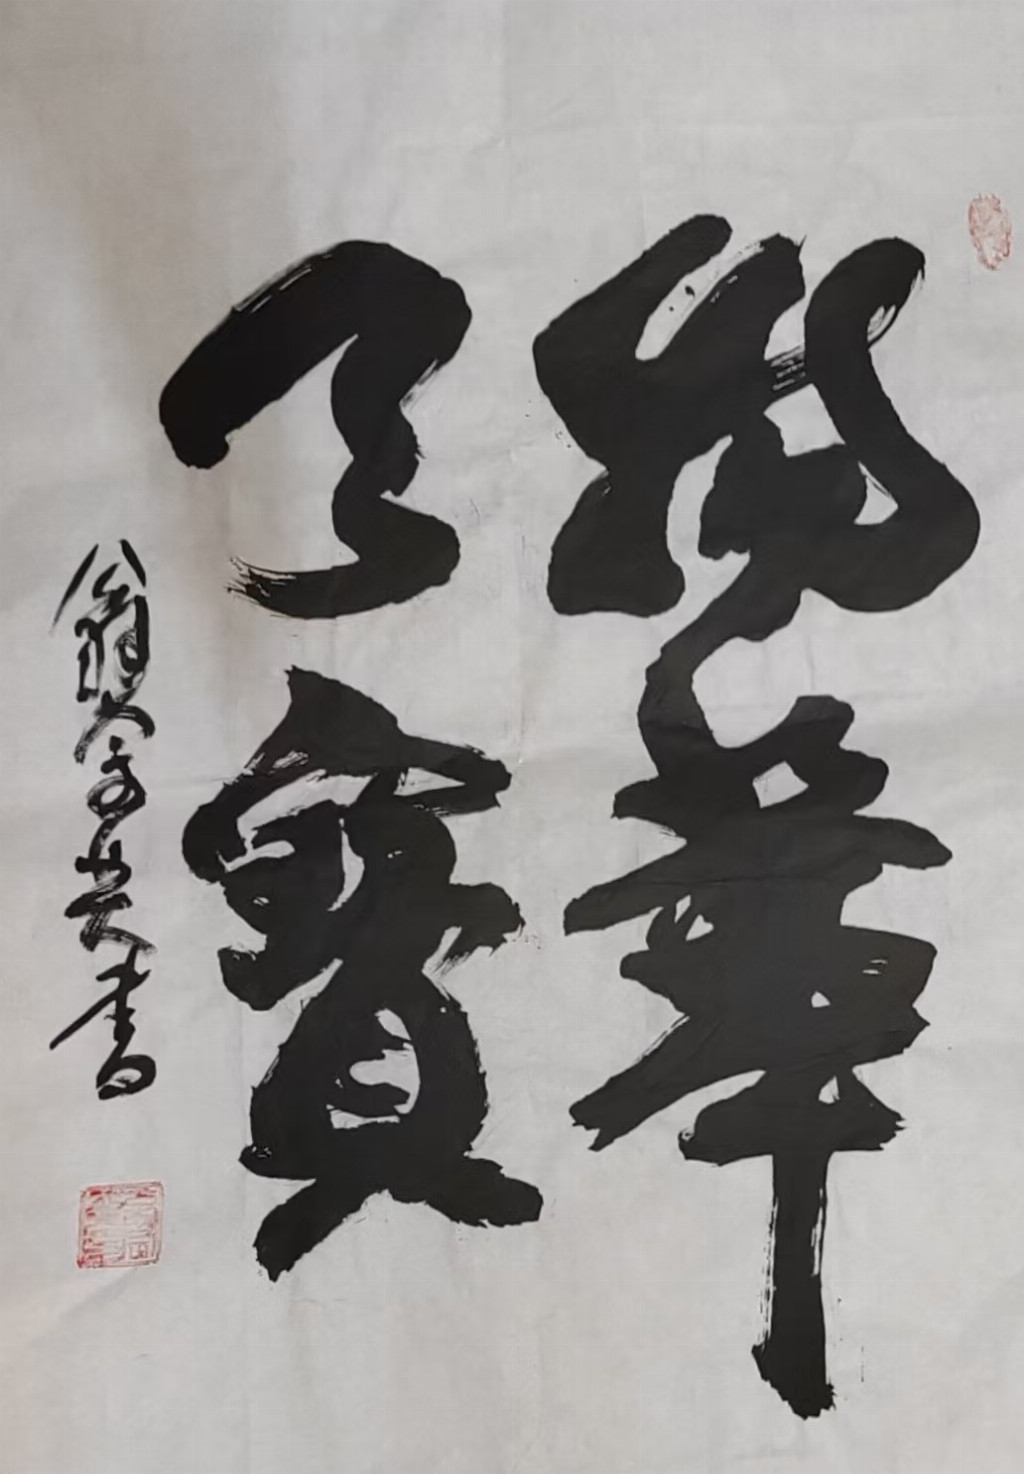 物華
天寶
翁書